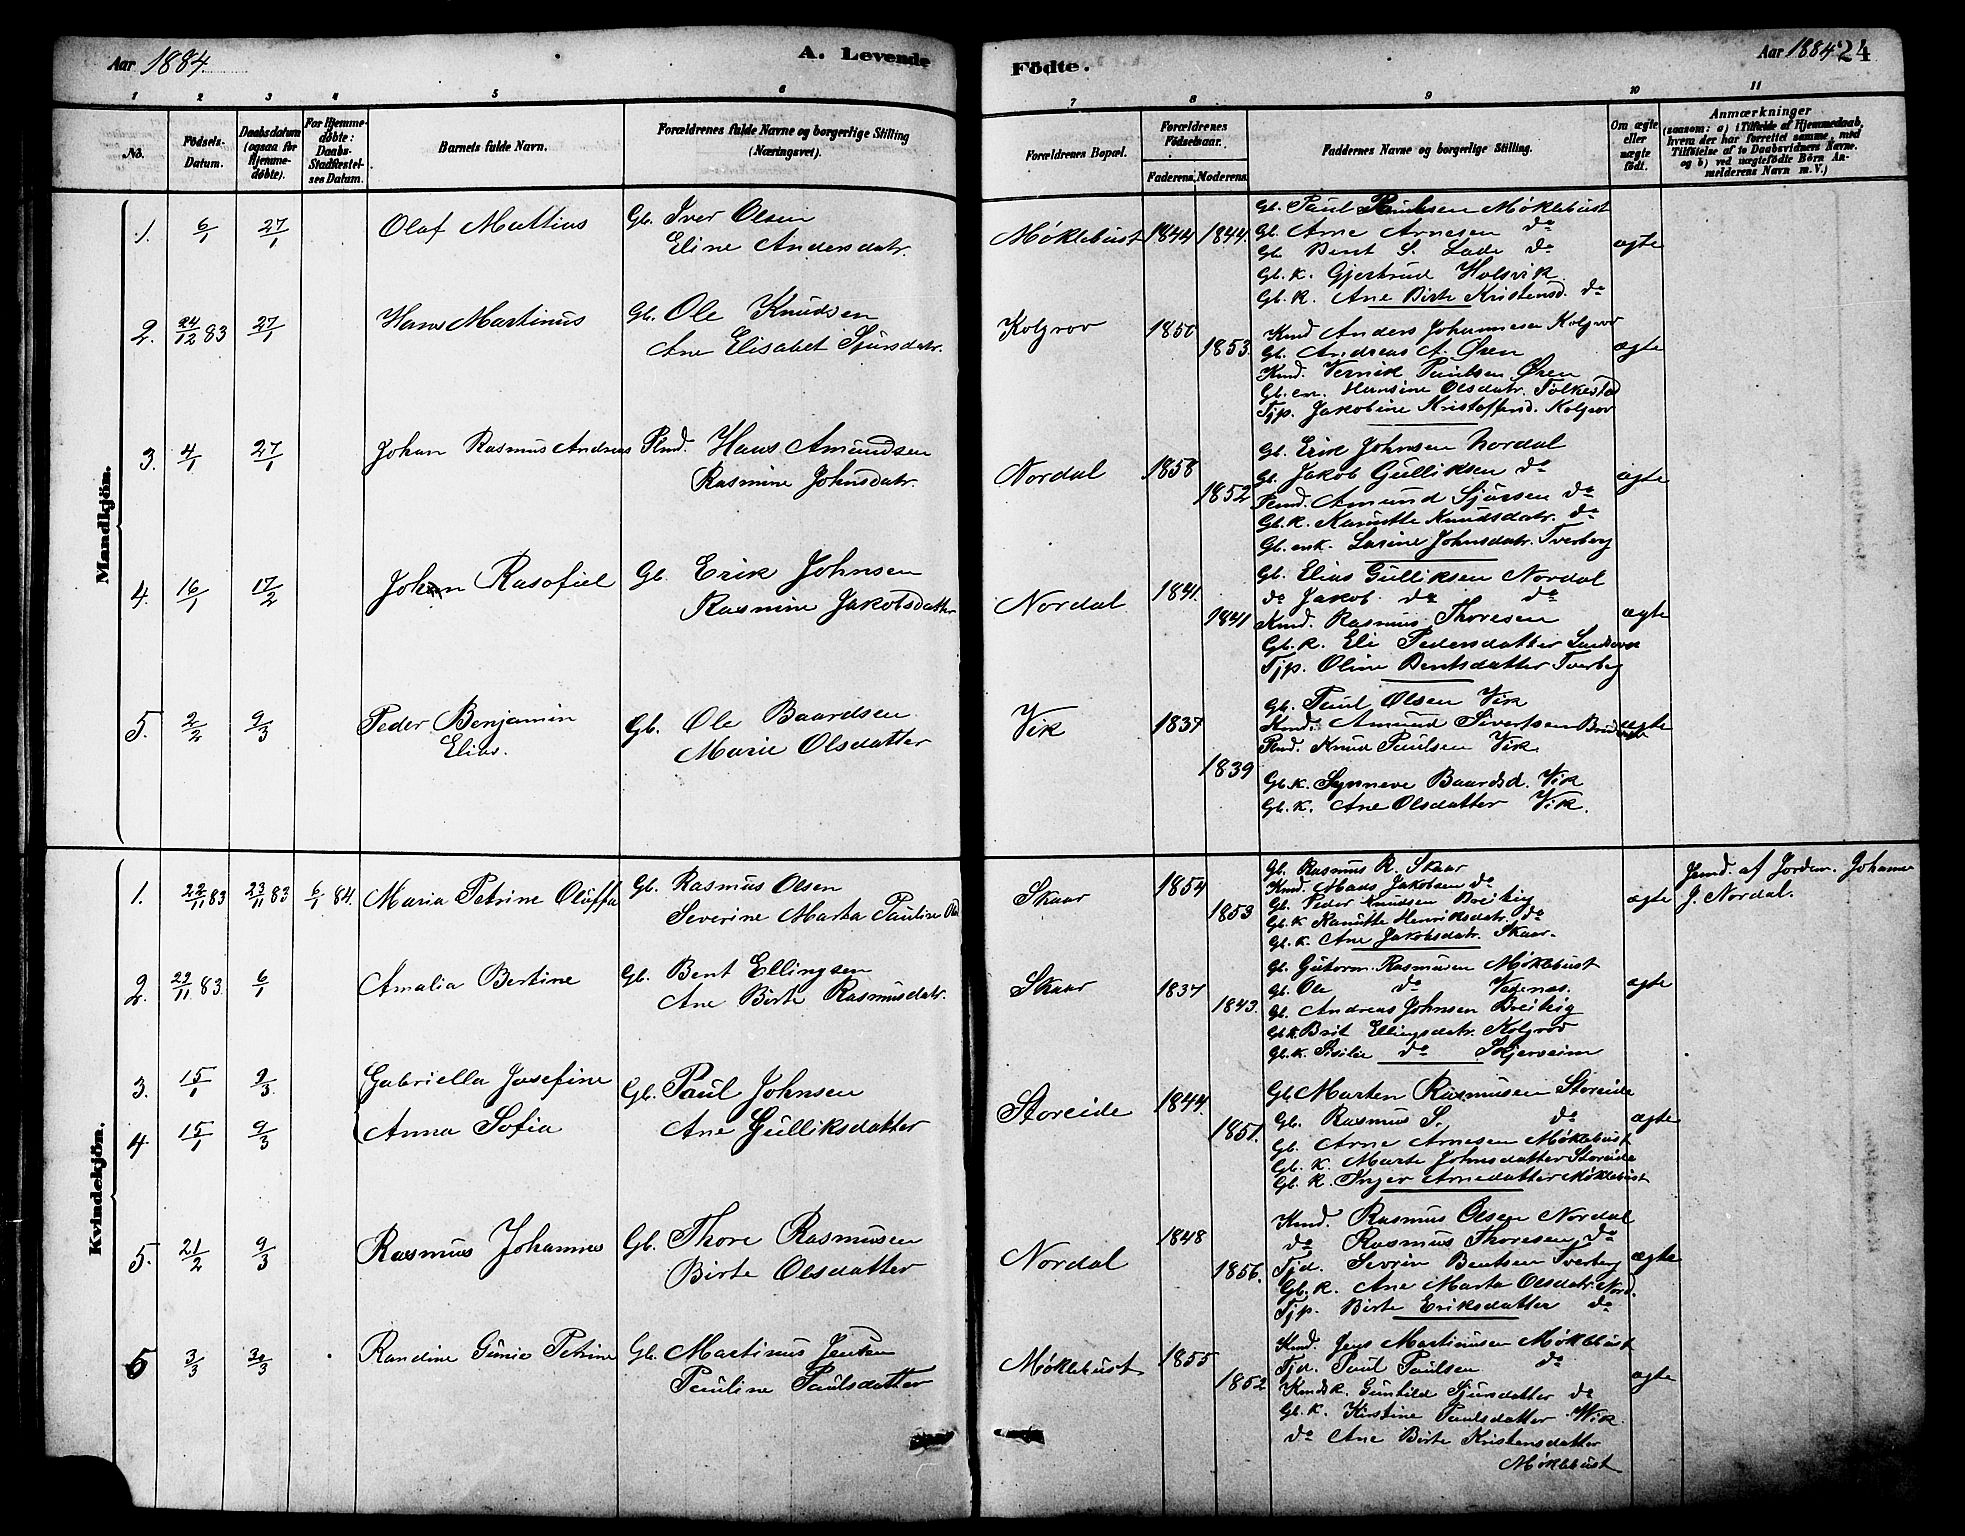 Aar 1884
A. Levende
Födte.
Aar 1884
24
1 2 3 4 5 6 7 8 9 10 11
No.
Födsels-Datum.
Daabsdatum (ogsaa for Hjemme-döbte).
For Hjemme-döbte: Daabs-Stadfæstel-ses Datum.
Barnets fulde Navn.
Forældrenes fulde Navne og borgerlige Stilling (Næringsvei).
Forældrenes Bopæl.
Forældrenes Födselsaar.
Faderens. Moderens.
Faddernes Navne og borgerlige Stilling.
Om ægte eller uægte födt.
Anmærkninger
(saasom: a) i Tilfælde af Hjemmedaab, hvem der har forrettet samme, med Tilföielse af to Daabsvidners Navne. og b) ved uægtefödte Börn An-melderens Navn m. V.)
Mandkjön.
1. 6/1 27/1 Olaf Mattias Gb. Iver Olsen
Eline Andersdatr.
Møklebust 1844 1844.
Gb. Paul Paulsen Møklebust
Gb. Arne Arnesen do
Gb. Bent S. Lade do
Gb. K. Gjertrud Holsvik
Gb. K. Ane Birte Kristensd. do
ægte
2. 24/12 83 27/1 Hans Martinus Gb. Ole Knudsen
Ane Elisabet Sjursdatr.
Kolgrov 1850 1853
Kmd Anders Johannesen Kolgrov
Gb. Andreas A. Øren
Kmd. Vernik Paulsen Øren
Gb. en. Hansine Olsdatr. Folkestad
Tjp. Jakobine Kristoffersd. Kolgrov
ægte
3. 4/1 27/1 Johan Rasmus Andreas Pmd. Hans Amundsen
Rasmine Johnsdatr.
Nordal 1858 1852
Gb. Erik Johnsen Nordal
Gb. Jakob Gulliksen do
Pmd. Amund Sjursen do
Gb. K. Kanutte Knudsdatr. do
Gb. enk. Lasine Johnsdatr. Tverberg
ægte
4. 16/1 17/2 Johan Rasofiel Gb. Erik Johnsen
Rasmine Jakobsdatter
Nordal 1841. 1841
Gb. Elias Gulliksen Nordal
do Jakob do do
Kmd. Rasmus Thoresen
Gb. K. Eli Pedersdatter
Tjp. Oline Bentsdatter Tverberg
ægte
5. 2/2 9/3 Peder Benjamin
Elias.
Gb. Ole Baardsen
Marie Olsdatter
Vik 1837 1839
Gb. Paul Olsen Vik
Kmd. Amund Sivertsen
Pmd. Knud Paulsen Vik
Gb. K. Synneve Baardsd. Vik
Gb. K. Ane Olsdatter Vik.
ægte
Kvindekjön.
1. 22/11 83 23/11 83 6/1 84. Maria Petrine Oluffa Gb. Rasmus Olsen
Severine Marta Pauline
Skaar 1854 1853
Gb. Rasmus R. Skaar
Kmd. Mads Jakobsen do
Gb. Peder Knudsen Breivig
Gb. K Kanutte Henriksdatr. do
Gb. K. Ane Jakobsdatr. Skaar.
ægte
af Jordm. Johanne
J. Nordal.
2. 22/11 83. 6/1 Amalia Bertine Gb. Bent Ellingsen
Ane Birte Rasmusdatr.
Skaar 1837 1843.
Gb. Gutorm Rasmusen Møklebust
Gb. Ole do Vadenas.
Gb. Andreas Johnsen Breivig
Gb. K. Brit Ellingsdatr. Kolgrov
Gb. K. Sisilie do Skjerveim
ægte
3. 15/1 9/3 Gabriella Josefine Gb. Paul Johnsen
4 15/1 9/3 Anna Sofia Ane Gulliksdatter
Storeide 1844 1851.
Gb Marten Rasmusen Storeide
Gb. Rasmus S. do
Gb. Arne Arnesen Møklebust
Gb. K. Marte Johnsdatter Storeide
Gb. K. Inger Arnedatter Møklebust
ægte
5. 21/2 9/3 Rasmus Johannes Gb. Thore Rasmusen
Birte Olsdatter
Nordal 1848 1856.
Kmd. Rasmus Olsen Nordal
do Rasmus Thoresen do
Tjd. Sevrin Bentsen Tverberg
Gb. K. Ane Marta Olsdatr. Nord.
Tjp. Birte Eriksdatter do
ægte
6 3/3 30/3 Randine Gunie Petrine Gb. Martinus Jensen
Pauline Paulsdatter
Møklebust 1855 1852
Kmd. Jens Martinusen Møklebust
Tjd. Paul Paulsen do
Kmds K. Gunhild Sjursdatter do
Gb. K. Kirstine Paulsdatter Vik
do Ane Birte Kristensdatter
Møklebust
ægte